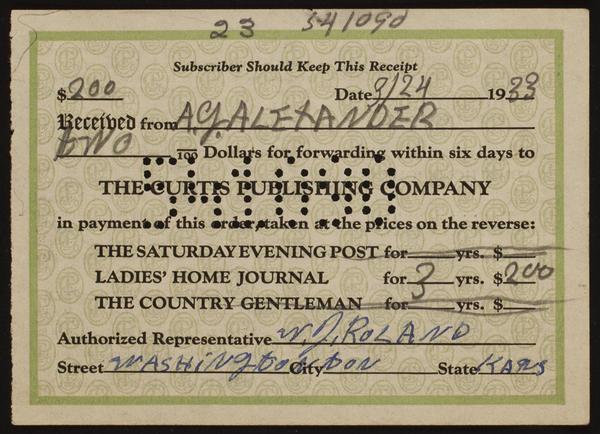 23 541090
Subscriber Should Keep This Receipt
$200 Date 9/24 1933
Received from A.J. ALEXANDER
two /100 Dollars for forwarding within six days to
THE CURTIS PUBLISHING COMPANY
in payment of this order, taken at the prices on the reverse:
THE SATURDAY EVENING POST for yrs. $
LADIES' HOME JOURNAL for 3 yrs. $200
THE COUNTRY GENTLEMAN for yrs. $
Authorized Representative W.J. ROLAND
Street WASHINGTON City State KANS